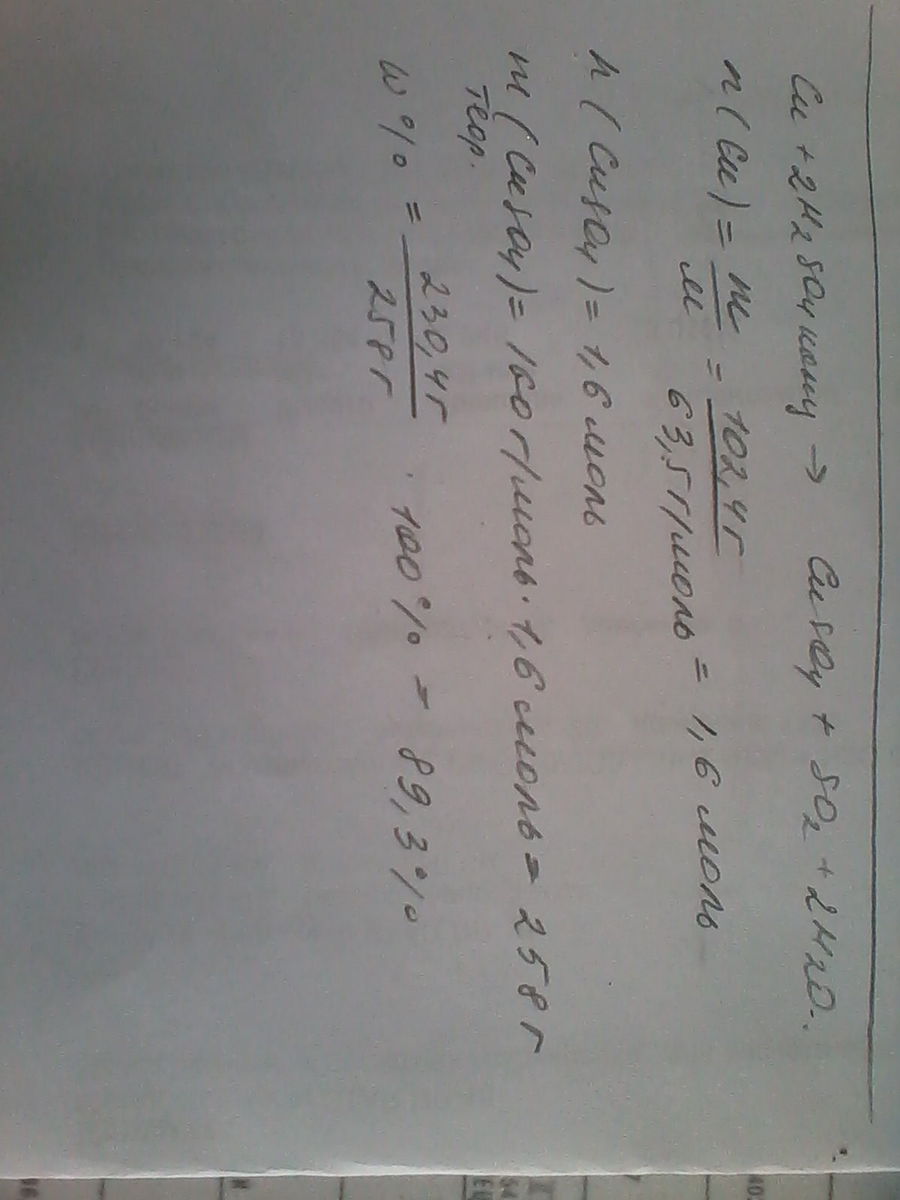 Cu + 2H2SO4 конц → CuSO4 + SO2 + 2H2O.
n(Cu) = m/M = 102,4 г / 63,5 г/моль = 1,6 моль
n(CuSO4) = 1,6 моль
m теор. (CuSO4) = 160 г/моль · 1,6 моль = 258 г
W% = 230,4 г / 258 г · 100% = 89,3%